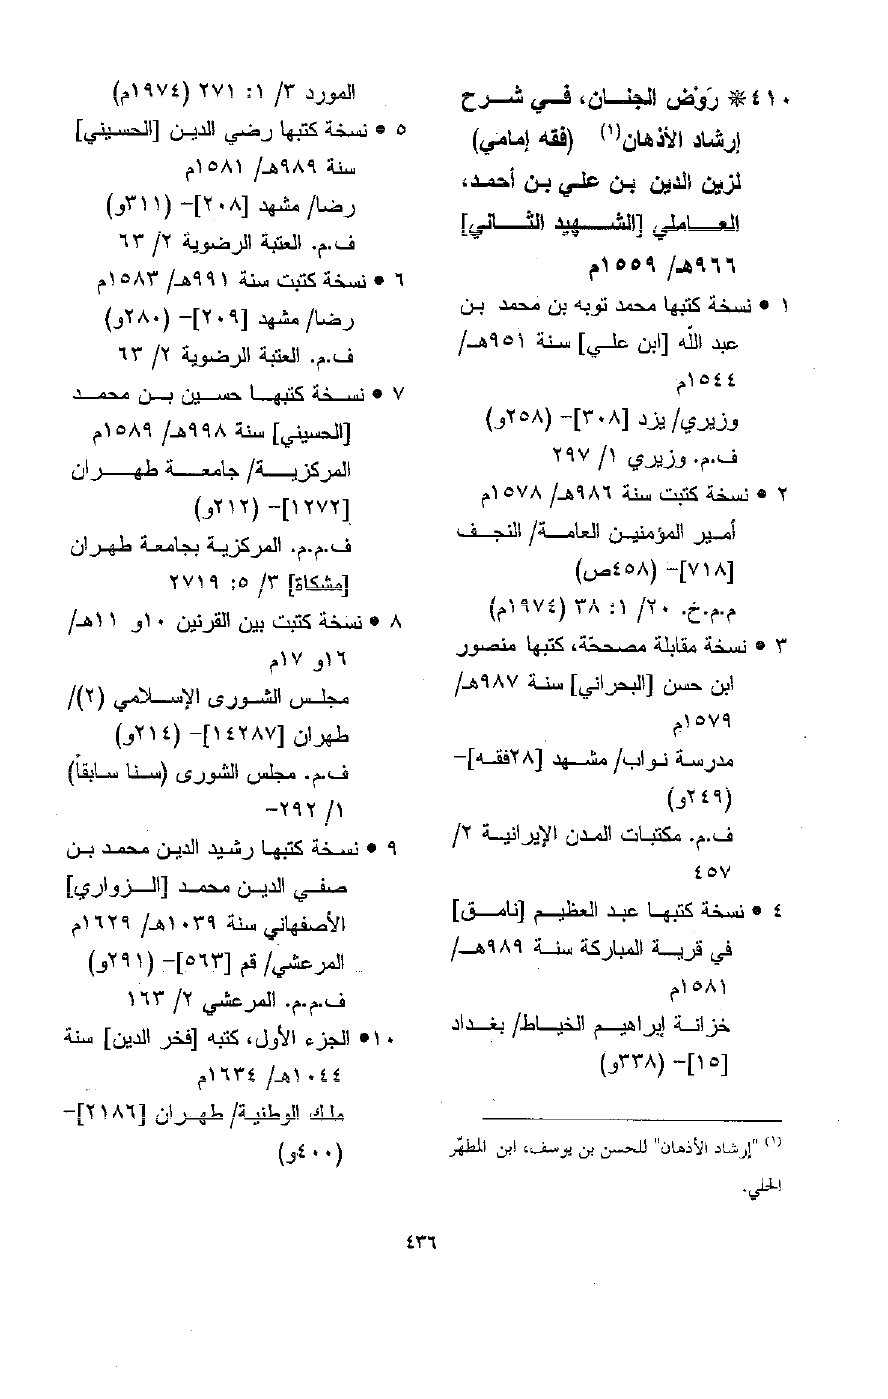 ٤١٠ * رَوْض الجنــان، فــي شــرح
إرشاد الأذهان(١) (فقه إمامي)
لزين الدين بـن علـي بـن أحمـد،
العـــاملي [الشـــهيد الثـــاني]
٩٦٦هـ/ ١٥٥٩م
١ • نسخة كتبها محمد تويه بن محمد بـن
عبد اللّه [ابن علي] سنة ٩٥١هـ/
١٥٤٤م
وزيري/ يزد [٣٠٨]– (٢٥٨و)
ف.م. وزيري ١/ ٢٩٧
٢ • نسخة كتبت سنة ٩٨٦هـ/ ١٥٧٨م
أمـير المؤمنيـن العامـة/ النجـف
[٧١٨]– (٤٥٨ص)
م.م.خ. ٢٠/ ١: ٣٨ (١٩٧٤م)
٣ • نسخة مقابلة مصححّة، كتبها منصور
ابن حسن [البحراني] سنة ٩٨٧هـ/
١٥٧٩م
مدرسة نـواب/ مشـهد [٢٨فقـه]–
(٢٤٩و)
ف.م. مكتبات المدن الإيرانية ٢/
٤٥٧
٤ • نسخة كتبها عبد العظيم [نامـق]
في قريـة المباركة سنـة ٩٨٩هـ/
١٥٨١م
خزانـة إبراهيـم الخيـاط/ بغـداد
[١٥]– (٣٣٨و)
(١) "إرشاد الأذهان" للحسن بن يوسف، ابن المطهّر
الحلي.
المورد ٣/ ١: ٢٧١ (١٩٧٤م)
٥ • نسخة كتبها رضي الديـن [الحسيني]
سنة ٩٨٩هـ/ ١٥٨١م
رضا/ مشهد [٢٠٨]– (٣١١و)
ف.م. العتبة الرضوية ٢/ ٦٣
٦ • نسخة كتبت سنة ٩٩١هـ/ ١٥٨٣م
رضا/ مشهد [٢٠٩]– (٢٨٠و)
ف.م. العتبة الرضوية ٢/ ٦٣
٧ • نسـخة كتبهـا حسـين بـن محمـد
[الحسيني] سنة ٩٩٨هـ/ ١٥٨٩م
المركزيـــة/ جامعـــة طهـــران
[١٢٧٢]– (٢١٢و)
ف.م.م. المركزية بجامعة طهران
[مشكاة] ٣/ ٥: ٢٧١٩
٨ • نسخة كتبت بين القرنين ١٠و ١١هـ/
١٦و ١٧م
مجلـس الشـورى الإسـلامي (٢)/
طهران [١٤٢٨٧]– (٢١٤و)
ف.م. مجلس الشورى (سنـا سـابقاً)
١/ ٢٩٢–
٩ • نسخة كتبها رشيد الدين محمد بـن
صفـي الديـن محمـد [الـزواري]
الأصفهاني سنة ١٠٣٩هـ/ ١٦٢٩م
المرعشي/ قم [٥٦٣]– (٢٩١و)
ف.م.م. المرعشي ٢/ ١٦٣
١٠• الجزء الأول، كتبه [فخر الدين] سنة
١٠٤٤هـ/ ١٦٣٤م
ملك الوطنية/ طهـران [٢١٨٦]–
(٤٠٠و)
٤٣٦